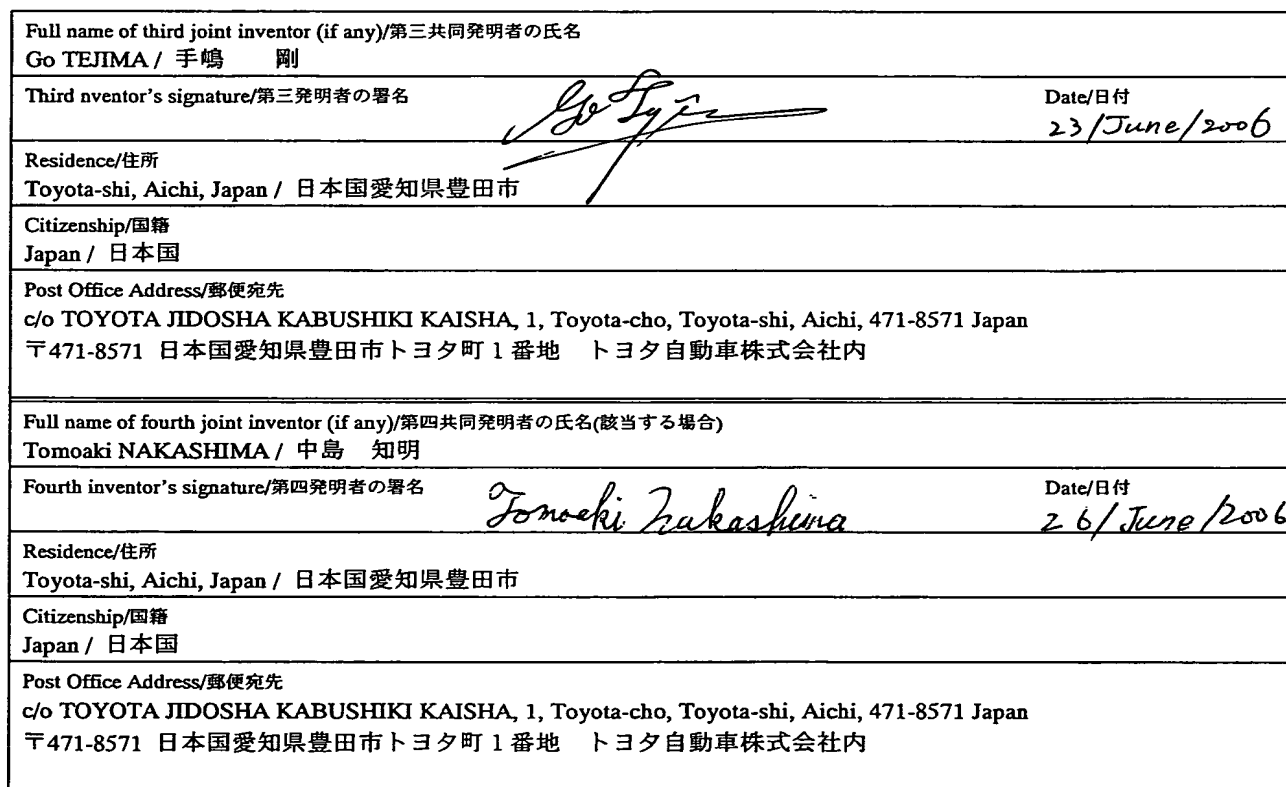 Full name of third joint inventor (if any)/第三共同発明者の氏名
Go TEJIMA / 手嶋　剛
Third nventor's signature/第三発明者の署名
Go Tejima
Date/日付
23/June/2006
Residence/住所
Toyota-shi, Aichi, Japan / 日本国愛知県豊田市
Citizenship/国籍
Japan / 日本国
Post Office Address/郵便宛先
c/o TOYOTA JIDOSHA KABUSHIKI KAISHA, 1, Toyota-cho, Toyota-shi, Aichi, 471-8571 Japan
〒471-8571 日本国愛知県豊田市トヨタ町1番地　トヨタ自動車株式会社内
Full name of fourth joint inventor (if any)/第四共同発明者の氏名(該当する場合)
Tomoaki NAKASHIMA / 中島　知明
Fourth inventor's signature/第四発明者の署名
Tomoaki Nakashima
Date/日付
26/June/2006
Residence/住所
Toyota-shi, Aichi, Japan / 日本国愛知県豊田市
Citizenship/国籍
Japan / 日本国
Post Office Address/郵便宛先
c/o TOYOTA JIDOSHA KABUSHIKI KAISHA, 1, Toyota-cho, Toyota-shi, Aichi, 471-8571 Japan
〒471-8571 日本国愛知県豊田市トヨタ町1番地　トヨタ自動車株式会社内